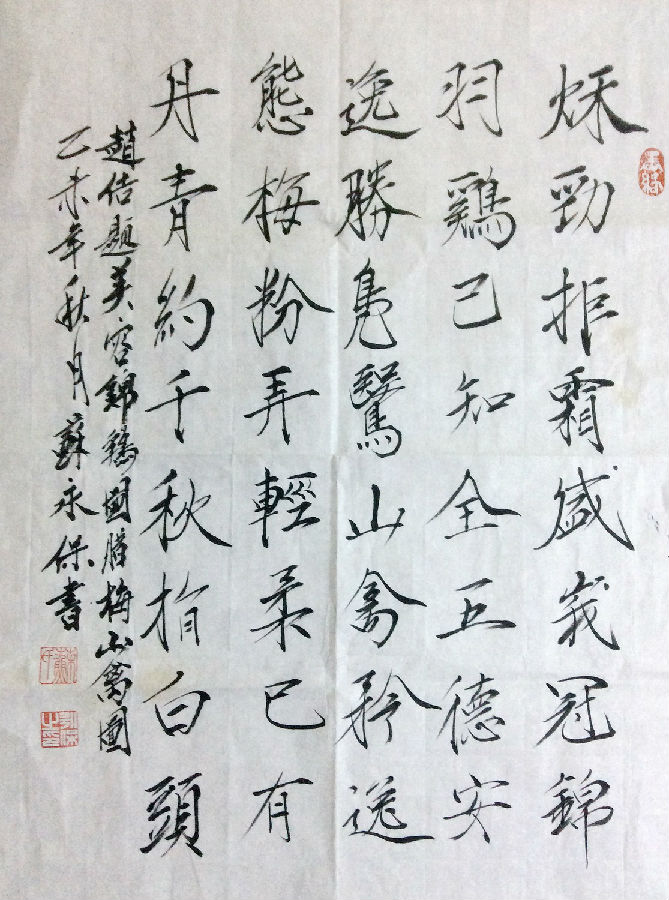 秌勁拒霜盛峩冠錦
羽鷄已知全五德安
逸勝鳧鷖山禽矜逸
態梅粉弄輕柔已有
丹青約千秋指白頭
趙佶題芙容錦鷄圖腊梅山禽圖
乙未年秋月蘇永保書